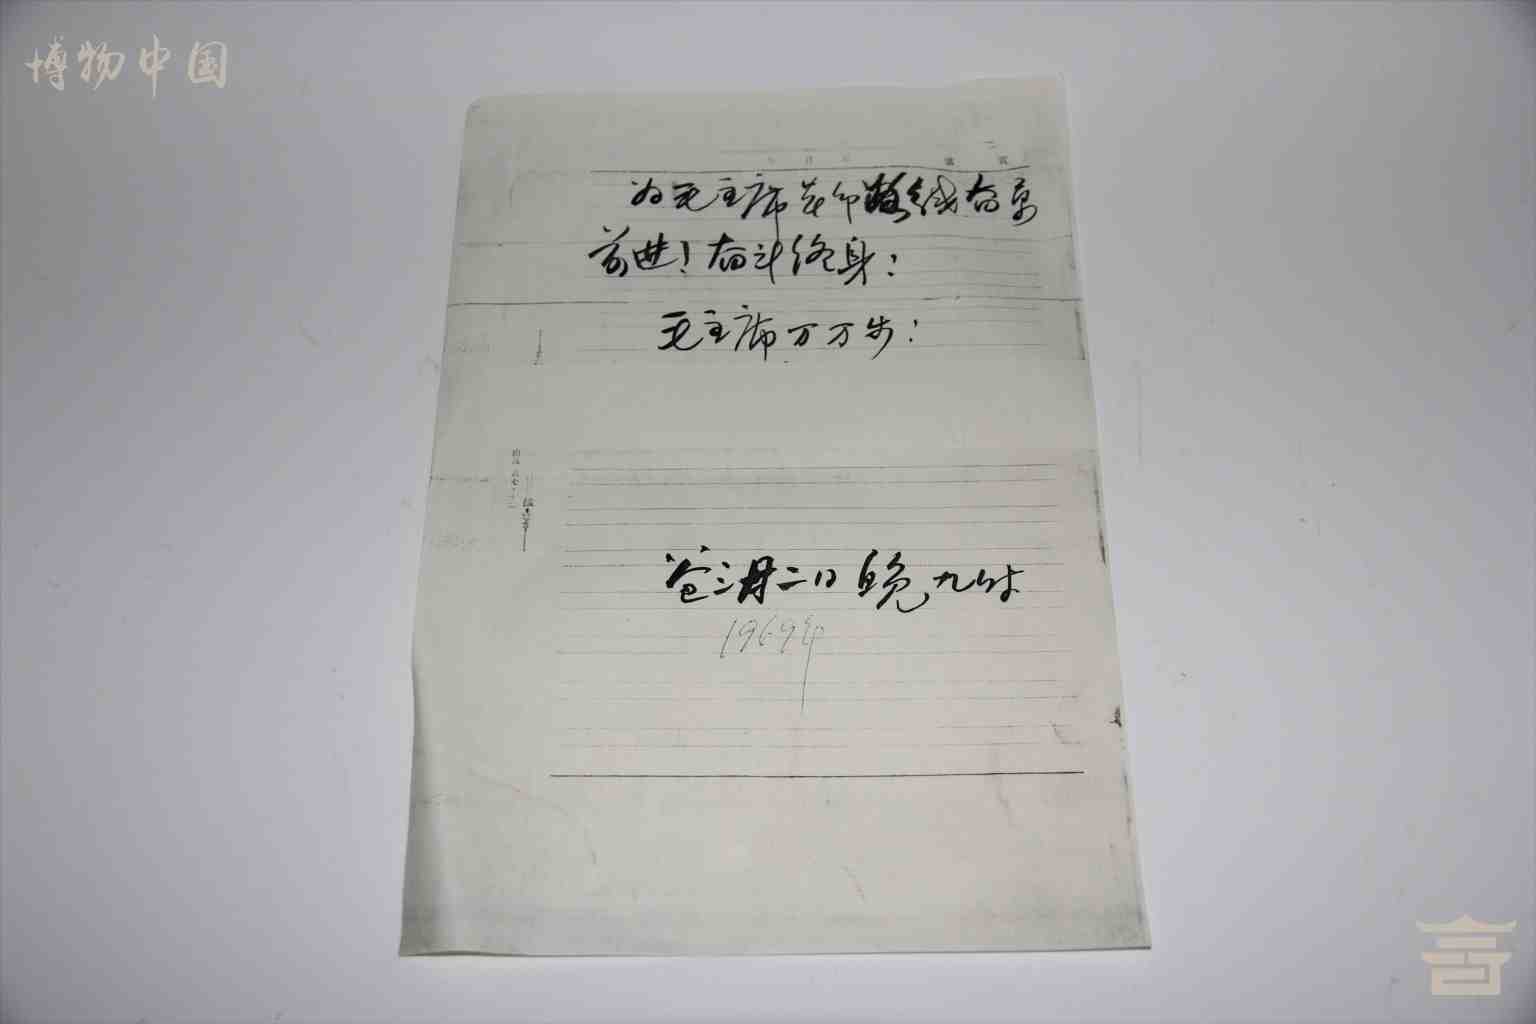 博物中国
第 页
为毛主席革命路线奋勇
前进！奋斗终身！
毛主席万万岁！
爸三月二日晚九时
1969年